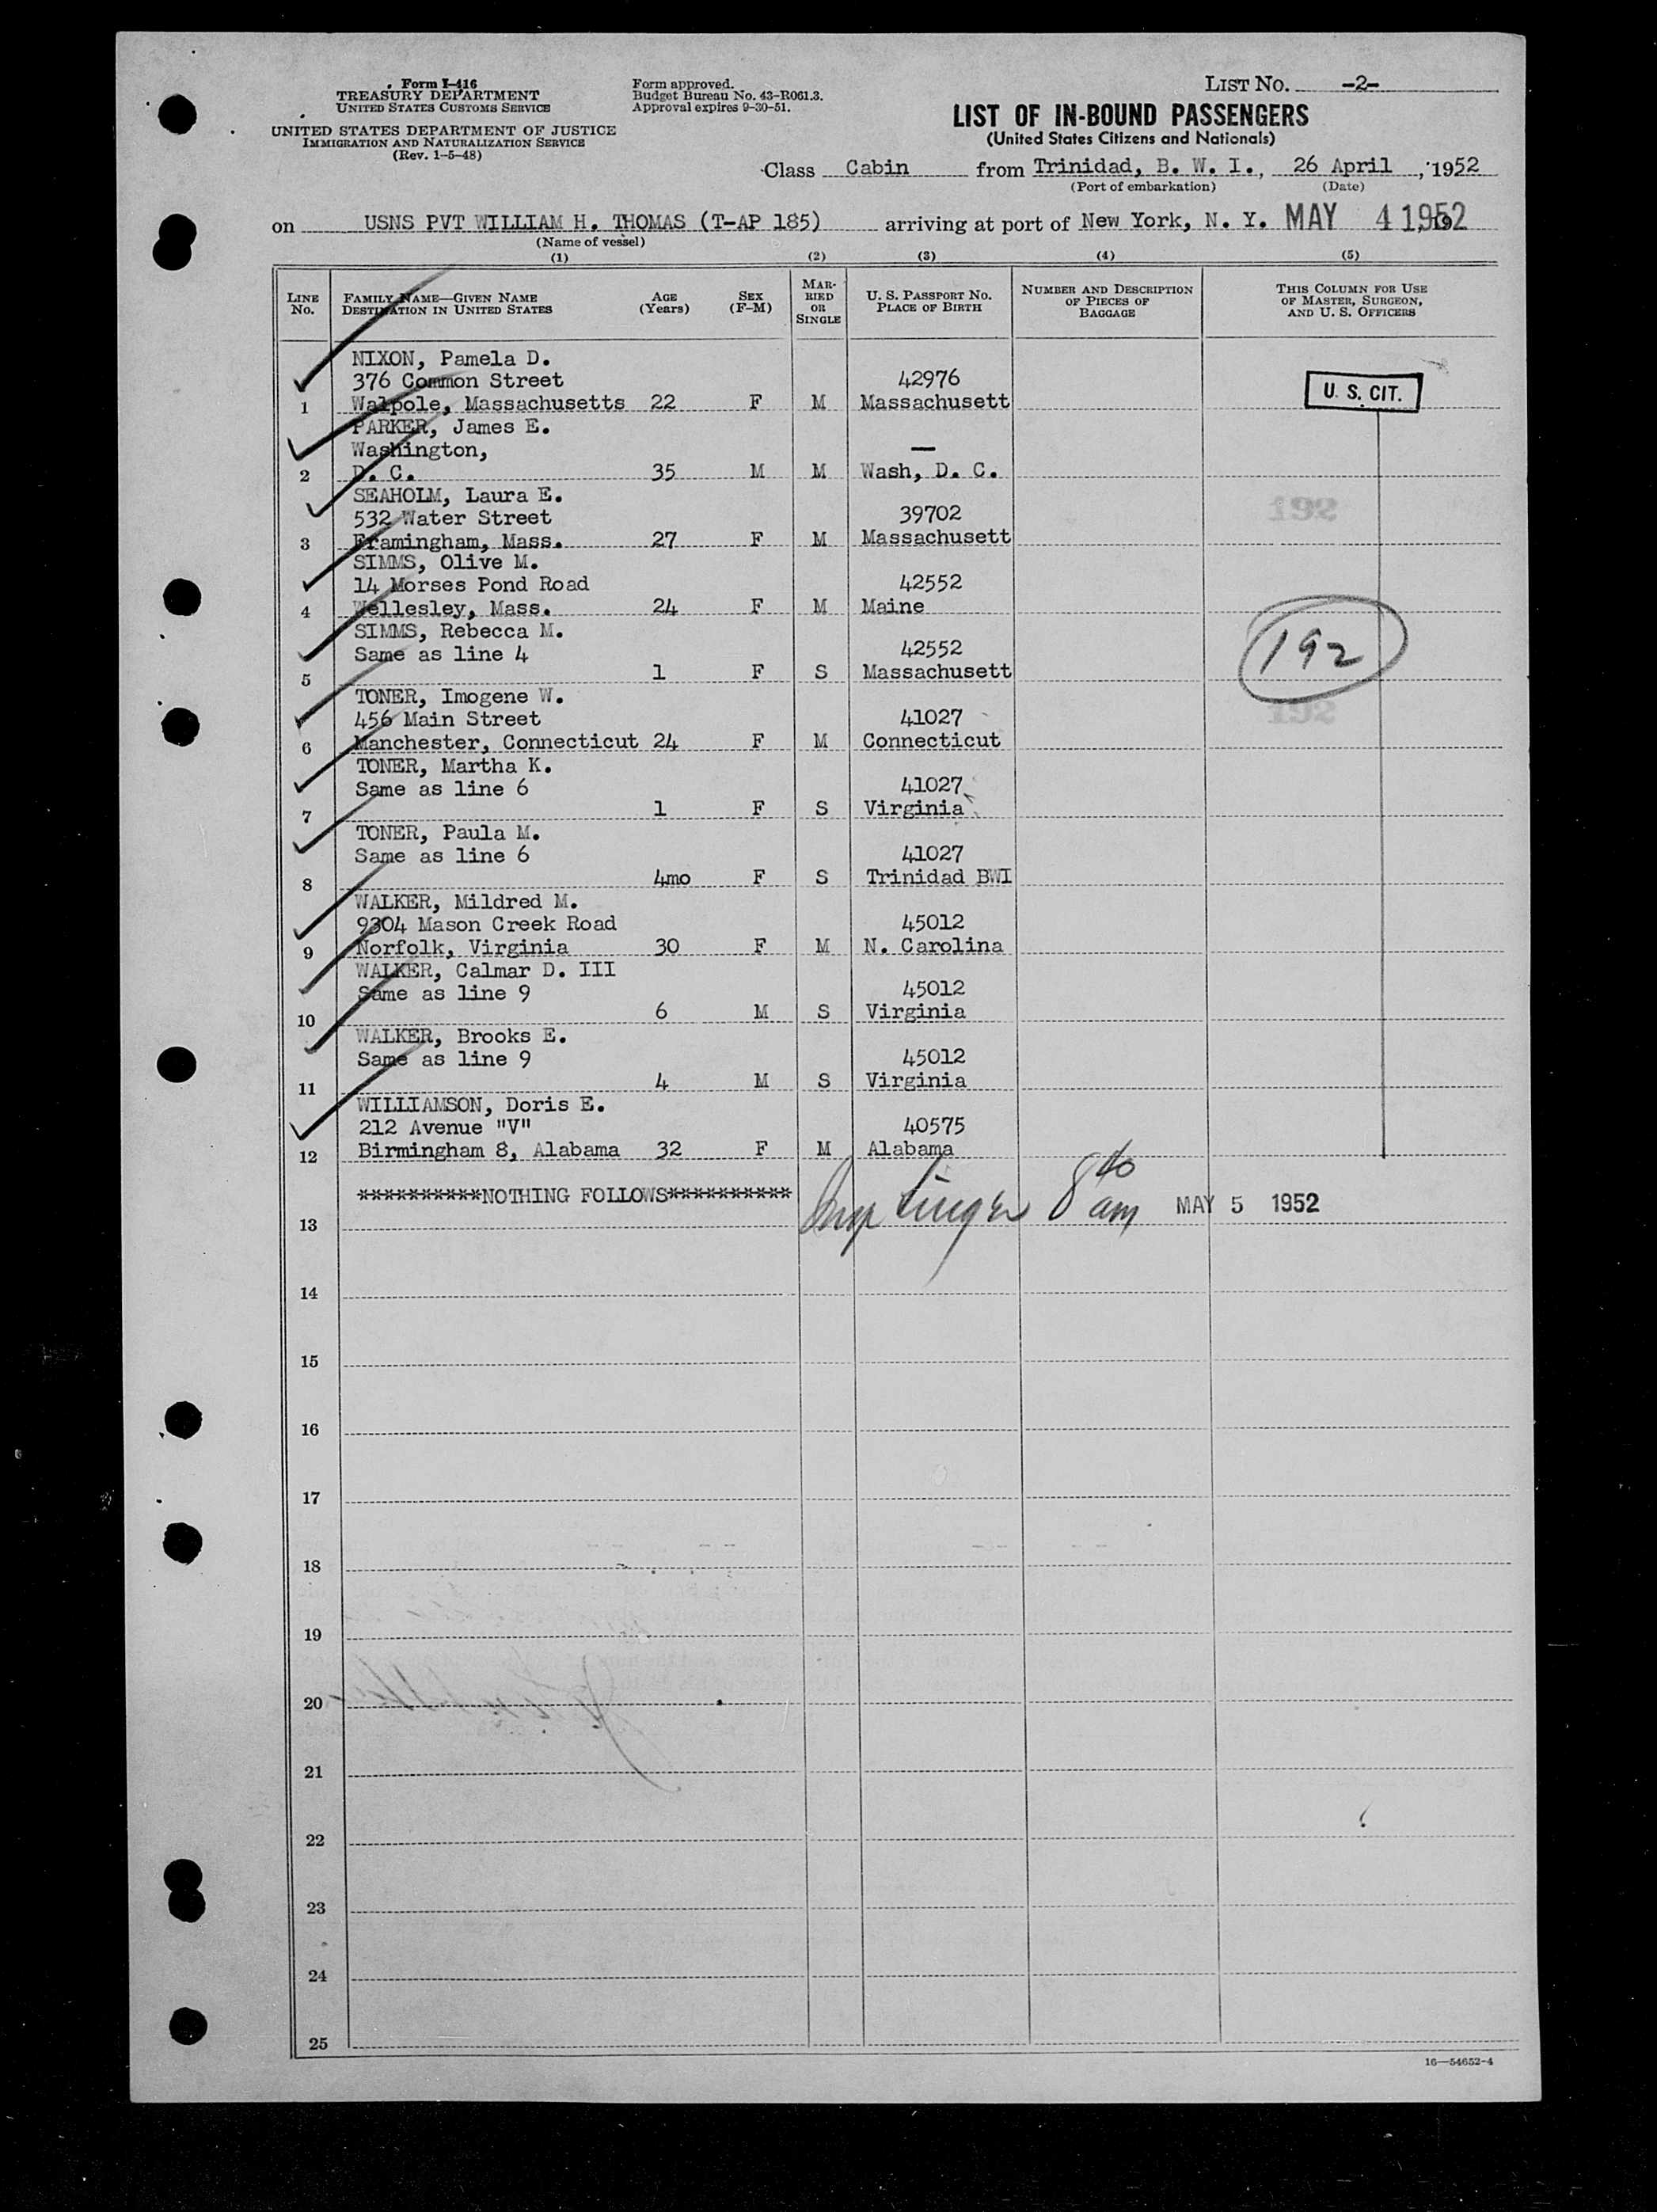 Form I-416
TREASURY DEPARTMENT
UNITED STATES CUSTOMS SERVICE
UNITED STATES DEPARTMENT OF JUSTICE
IMMIGRATION AND NATURALIZATION SERVICE
(Rev. 1-5-48)
Form approved.
Budget Bureau No. 43-R061.3.
Approval expires 9-30-51.
LIST NO. -2-
LIST OF IN-BOUND PASSENGERS
(United States Citizens and Nationals)
Class Cabin from Trinidad, B. W. I., 26 April, 1952
(Port of embarkation) (Date)
on USNS PVT WILLIAM H. THOMAS (T-AP 185) arriving at port of New York, N. Y. MAY 4 1952
(Name of vessel)
(1) (2) (3) (4) (5)
LINE No.
FAMILY NAME—GIVEN NAME
DESTINATION IN UNITED STATES
AGE (Years)
SEX (F-M)
MARRIED OR SINGLE
U. S. PASSPORT NO.
PLACE OF BIRTH
NUMBER AND DESCRIPTION OF PIECES OF BAGGAGE
THIS COLUMN FOR USE OF MASTER, SURGEON, AND U. S. OFFICERS
NIXON, Pamela D.
376 Common Street 42976
1 Walpole, Massachusetts 22 F M Massachusett
U. S. CIT.
PARKER, James E.
Washington, —
2 D. C. 35 M M Wash, D. C.
SEAHOLM, Laura E.
532 Water Street 39702
3 Framingham, Mass. 27 F M Massachusett
192
SIMMS, Olive M.
14 Morses Pond Road 42552
4 Wellesley, Mass. 24 F M Maine
SIMMS, Rebecca M.
Same as line 4 42552
5 1 F S Massachusett
192
TONER, Imogene W.
456 Main Street 41027
192
6 Manchester, Connecticut 24 F M Connecticut
TONER, Martha K.
Same as line 6 41027
7 1 F S Virginia
TONER, Paula M.
Same as line 6 41027
8 4mo F S Trinidad BWI
WALKER, Mildred M.
9304 Mason Creek Road 45012
9 Norfolk, Virginia 30 F M N. Carolina
WALKER, Calmar D. III
Same as line 9 45012
10 6 M S Virginia
WALKER, Brooks E.
Same as line 9 45012
11 4 M S Virginia
WILLIAMSON, Doris E.
212 Avenue "V" 40575
12 Birmingham 8, Alabama 32 F M Alabama
**********NOTHING FOLLOWS********** 8 am MAY 5 1952
13
14
15
16
17
18
19
20
21
22
23
24
25
16—54652-4